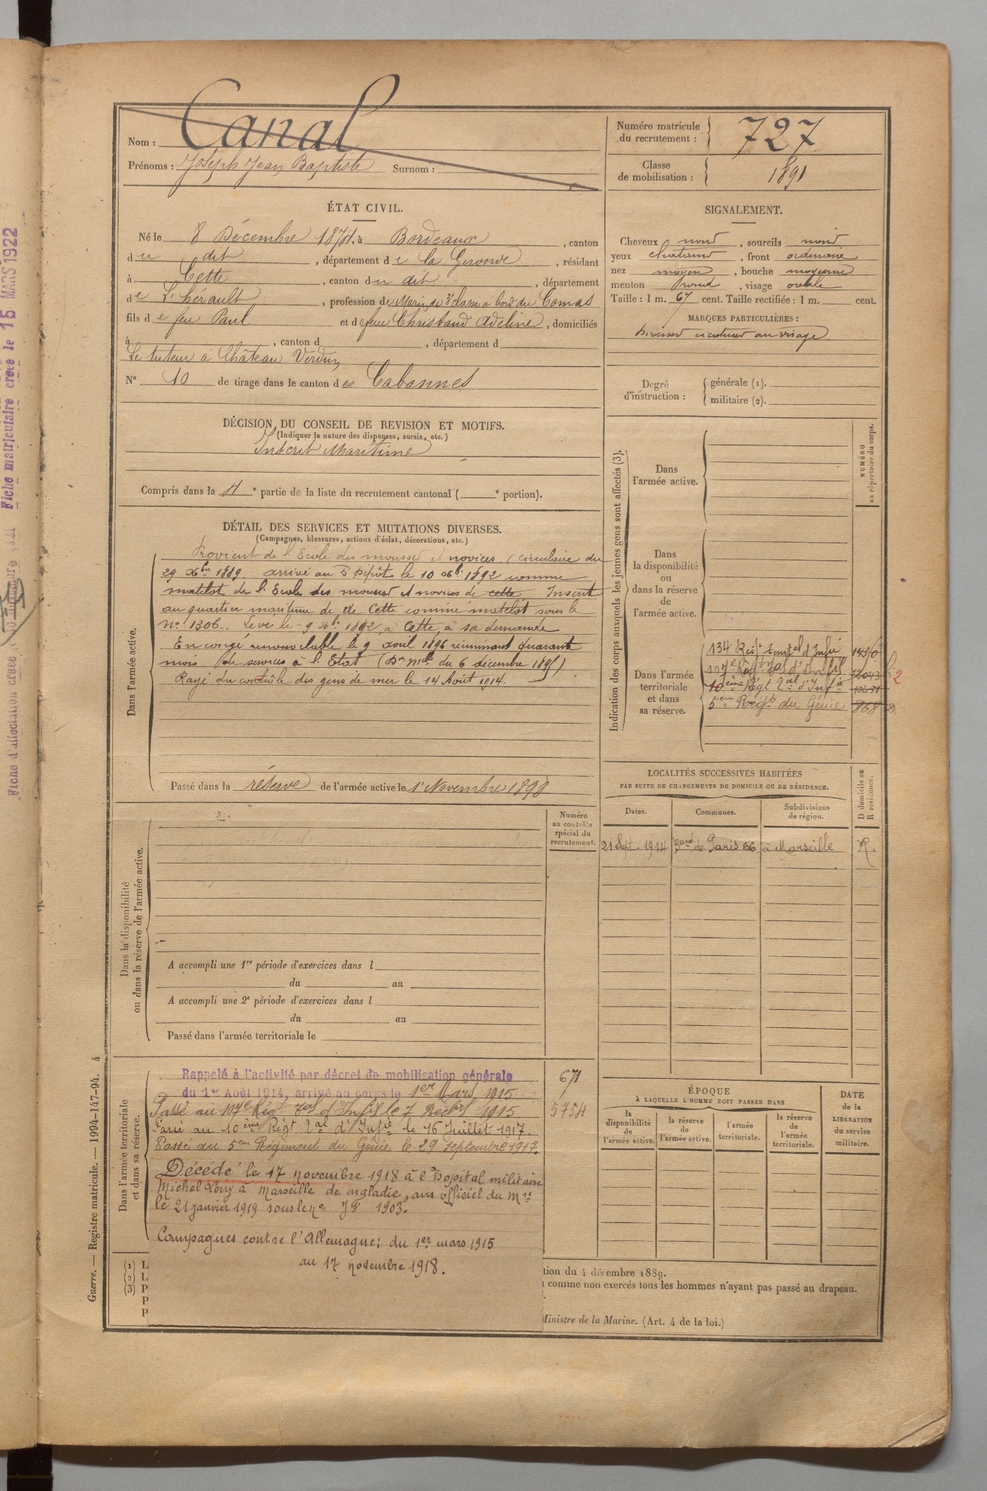 Nom : Canal
Prénoms : Joseph Jean Baptiste Surnom :
Numéro matricule du recrutement : 727
Classe de mobilisation : 1891
ÉTAT CIVIL.
Né le 8 Décembre 1871, à Bordeaux, canton
du dit, département de la Gironde, résidant
à Cette, canton du dit, département
de L'hérault, profession de Marin de 3e classe à bord du Comas
fils de feu Paul et de feue Christaud Adeline, domiciliés
à , canton d , département d
Le tuteur à Château Verdun
N° 10 de tirage dans le canton des Cabannes
SIGNALEMENT.
Cheveux noirs, sourcils noirs
yeux chatains, front ordinaire
nez moyen, bouche moyenne
menton rond, visage ovale
Taille : 1 m. 67 cent. Taille rectifiée : 1 m. cent.
MARQUES PARTICULIÈRES :
Diverses cicatrices au visage
Degré d'instruction : générale (1).
militaire (2).
DÉCISION DU CONSEIL DE REVISION ET MOTIFS.
(Indiquer la nature des dispenses, sursis, etc.)
Inscrit Maritime
Compris dans la e partie de la liste du recrutement cantonal ( e portion).
DÉTAIL DES SERVICES ET MUTATIONS DIVERSES.
(Campagnes, blessures, actions d'éclat, décorations, etc.)
Dans l'armée active.
Provient de l'Ecole des mousses et novices (circulaire du
29 Xbre 1889 arrivé au 5e dépôt le 10 1892 comme
matelot de l'Ecole des mousses et novices de cette Inscrit
au quartier maritime de de Cette comme matelot sous le
N° 1306. Levé le 9 Xbre 1892 à Cette, à sa demande
En congé renouvelable le 9 avril 1896 réunissant quarante
mois de services à l'Etat (Don mlle du 6 décembre 1895)
Rayé du contrôle des gens de mer le 14 Août 1914.
Passé dans la réserve de l'armée active le 1er Novembre 1898
Indication des corps auxquels les jeunes gens sont affectés (3).
NUMÉRO au répertoire du corps.
Dans l'armée active.
Dans la disponibilité ou dans la réserve de l'armée active.
Dans l'armée territoriale et dans sa réserve.
134 Régt territal d'Infie
10ème Régt Tal d'Infie
5eme Régt du Génie
LOCALITÉS SUCCESSIVES HABITÉES
PAR SUITE DE CHANGEMENTS DE DOMICILE OU DE RÉSIDENCE.
Dates.
Communes.
Subdivisions de région.
D domicile ou R résidence.
21 Sept. 1914 Bard de Paris 66 à Marseille R.
Numéro au contrôle spécial du recrutement.
Dans la disponibilité ou dans la réserve de l'armée active.
A accompli une 1re période d'exercices dans l
du au
A accompli une 2e période d'exercices dans l
du au
Passé dans l'armée territoriale le
Dans l'armée territoriale et dans sa réserve.
Rappelé à l'activité par décret de mobilisation générale
du 1er Août 1914, arrivé au corps le 1er Mars 1915
Passé au 107e Régt Tal d'Infie le 7 1915
Passé au 10ème Régt Tal d'Infie le 16 Juillet 1917.
Passé au 5eme Régiment du Génie le 29 septembre 1917.
Décédé le 17 novembre 1918 à l'hôpital militaire
Michel Lévy à Marseille de maladie, avis officiel du Mre
le 21 janvier 1919 sous le no 1903.
Campagnes contre l'Allemagne : du 1er mars 1915
au 17 novembre 1918.
671
5754
ÉPOQUE
À LAQUELLE L'HOMME DOIT PASSER DANS
la disponibilité de l'armée active.
la réserve de l'armée active.
l'armée territoriale.
la réserve de l'armée territoriale.
DATE de la LIBÉRATION du service militaire.
tion du 4 décembre 1889.
comme non exercés tous les hommes n'ayant pas passé au drapeau.
Ministre de la Marine. (Art. 4 de la loi.)
Guerre. — Registre matricule. — 1994-147-94. 4
Fiche matriculaire créée le 15 MARS 1922